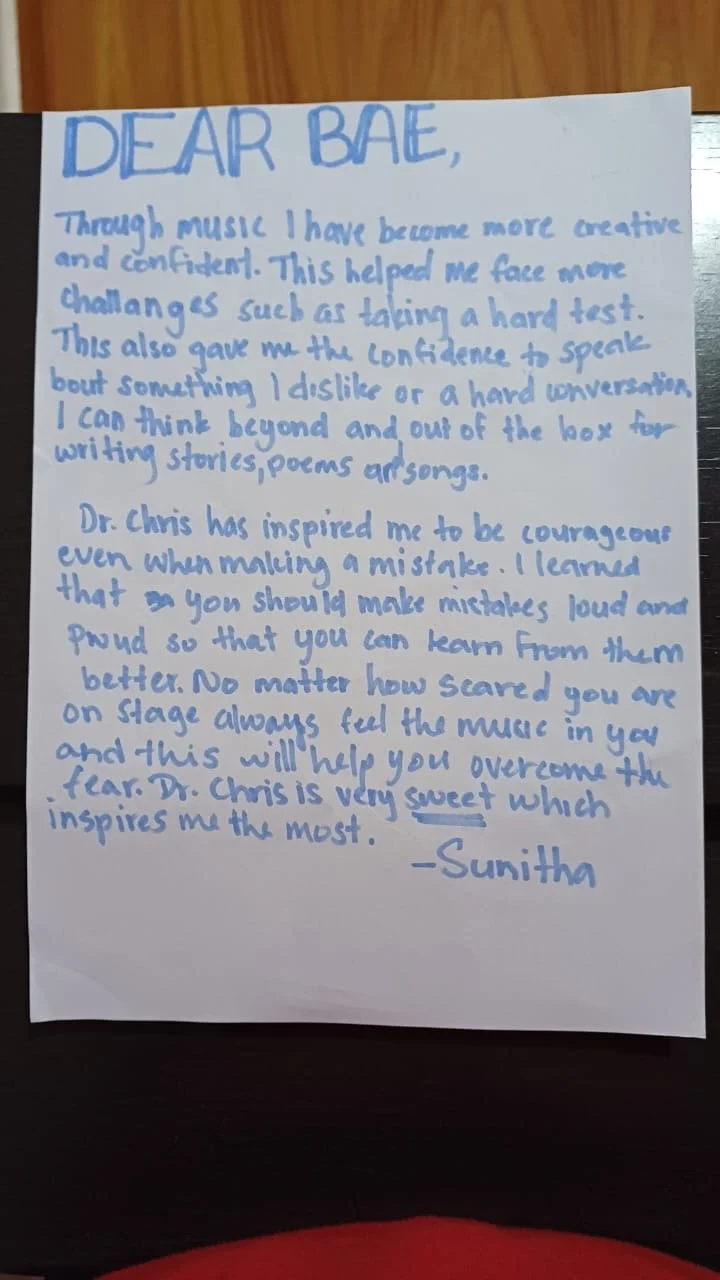 DEAR BAE,
Through music I have become more creative
and confident. This helped me face more
challanges such as taking a hard test.
This also gave me the confidence to speak
bout something I dislike or a hard conversation
I can think beyond and out of the box for
writing stories, poems or songs.
Dr. Chris has inspired me to be courageous
even when making a mistake. I learned
that you should make mistakes loud and
proud so that you can learn From them
better. No matter how scared you are
on stage always feel the music in you
and this will help you overcome the
fear. Dr. Chris is very sweet which
inspires me the most.
-Sunitha